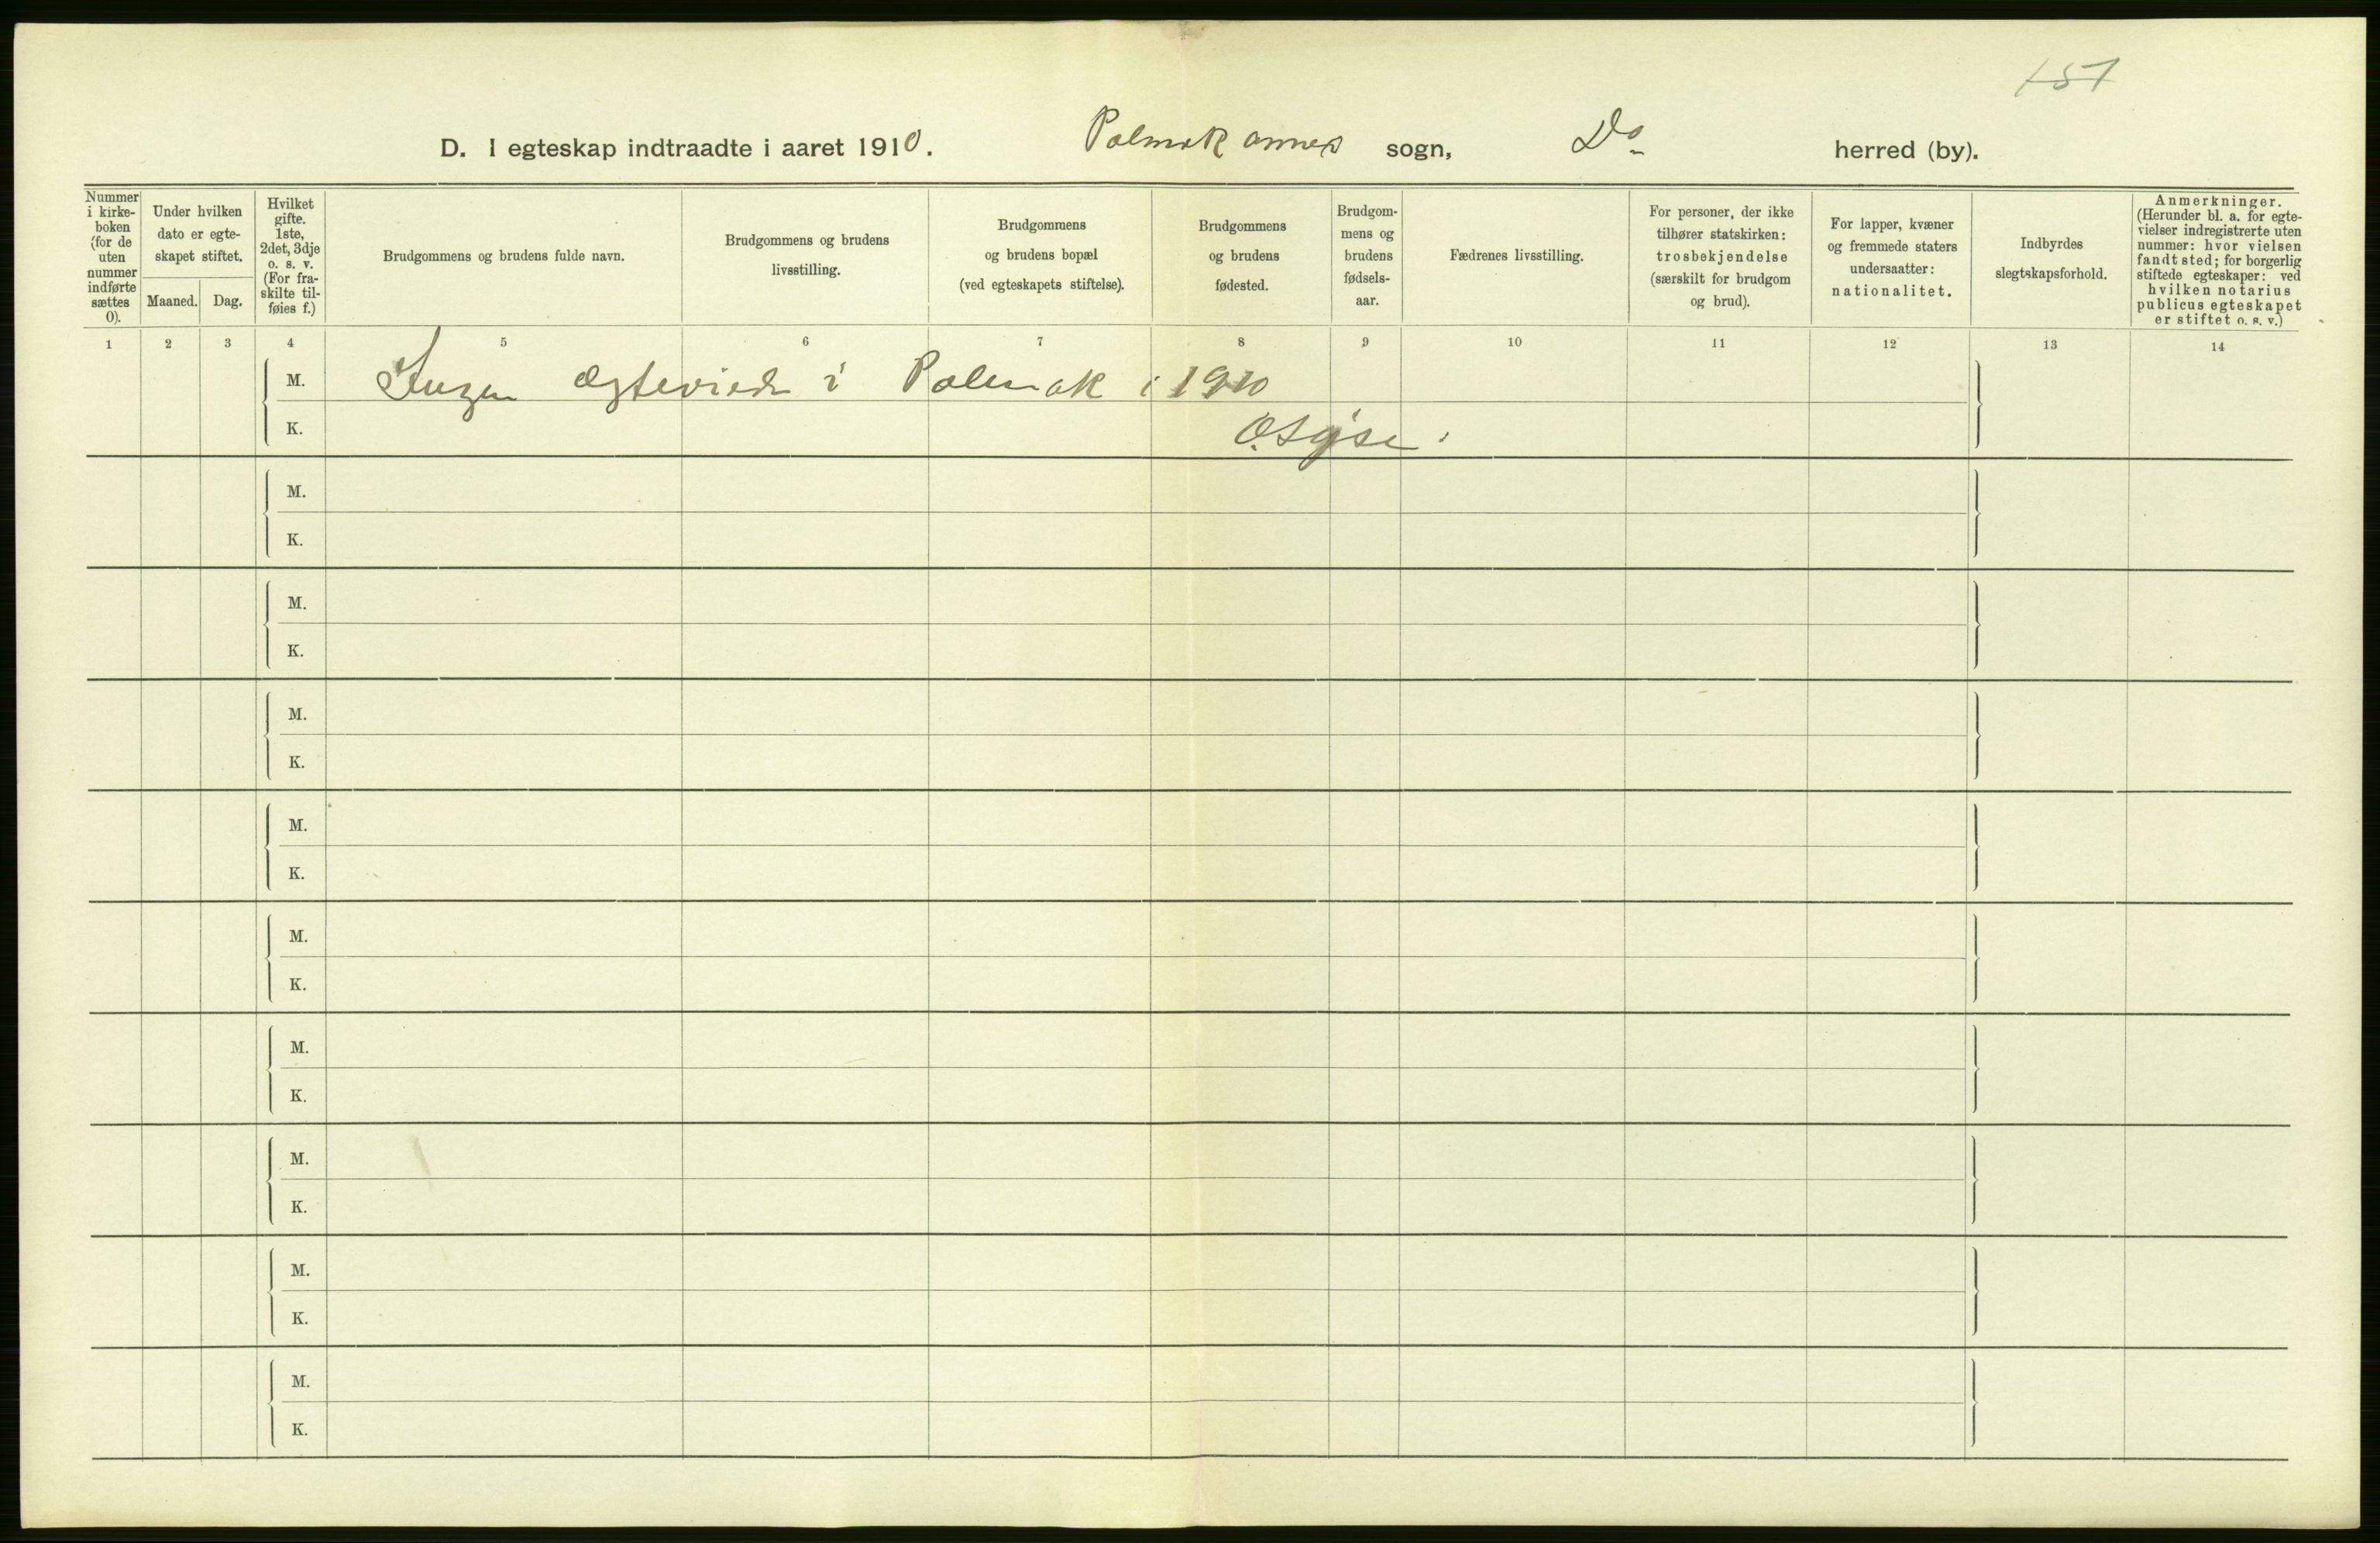 151
D. I egteskap indtraadte i aaret 1910. Polmak annex sogn, Do herred (by).
Nummer i kirke-boken (for de uten nummer indførte sættes 0).
Under hvilken dato er egte-skapet stiftet.
Maaned. Dag.
Hvilket gifte. 1ste, 2det, 3dje o. s. v. (For fra-skilte til-føies f.)
Brudgommens og brudens fulde navn.
Brudgommens og brudens livsstilling.
Brudgommens og brudens bopæl (ved egteskapets stiftelse).
Brudgommens og brudens fødested.
Brudgom-mens og brudens fødsels-aar.
Fædrenes livsstilling.
For personer, der ikke tilhører statskirken: trosbekjendelse (særskilt for brudgom og brud).
For lapper, kvæner og fremmede staters undersaatter: nationalitet.
Indbyrdes slegtskapsforhold.
Anmerkninger. (Herunder bl. a. for egte-vielser indregistrerte uten nummer: hvor vielsen fandt sted; for borgerlig stiftede egteskaper: ved hvilken notarius publicus egteskapet er stiftet o. s. v.)
1 2 3 4 5 6 7 8 9 10 11 12 13 14
M. Ingen Ægteviede i Polmak i 1910
K.
M.
K.
M.
K.
M.
K.
M.
K.
M.
K.
M.
K.
M.
K.
M.
K.
M.
K.